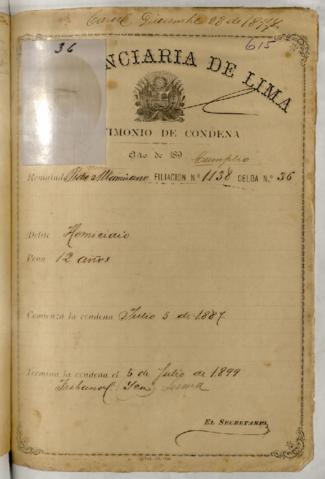 Diciembre 28 de 1897
615
36
NCIARIA DE LIMA
TIMONIO DE CONDENA
Año de 189
Cumplio
Rematado Pedro Mamani FILIACION N.º 1138 CELDA N.º 36
Delito Homicidio
Pena 12 años
Comienza la condena Julio 5 de 1887
Termina la condena el 5 de Julio de 1899
Tribunal
EL SECRETARIO